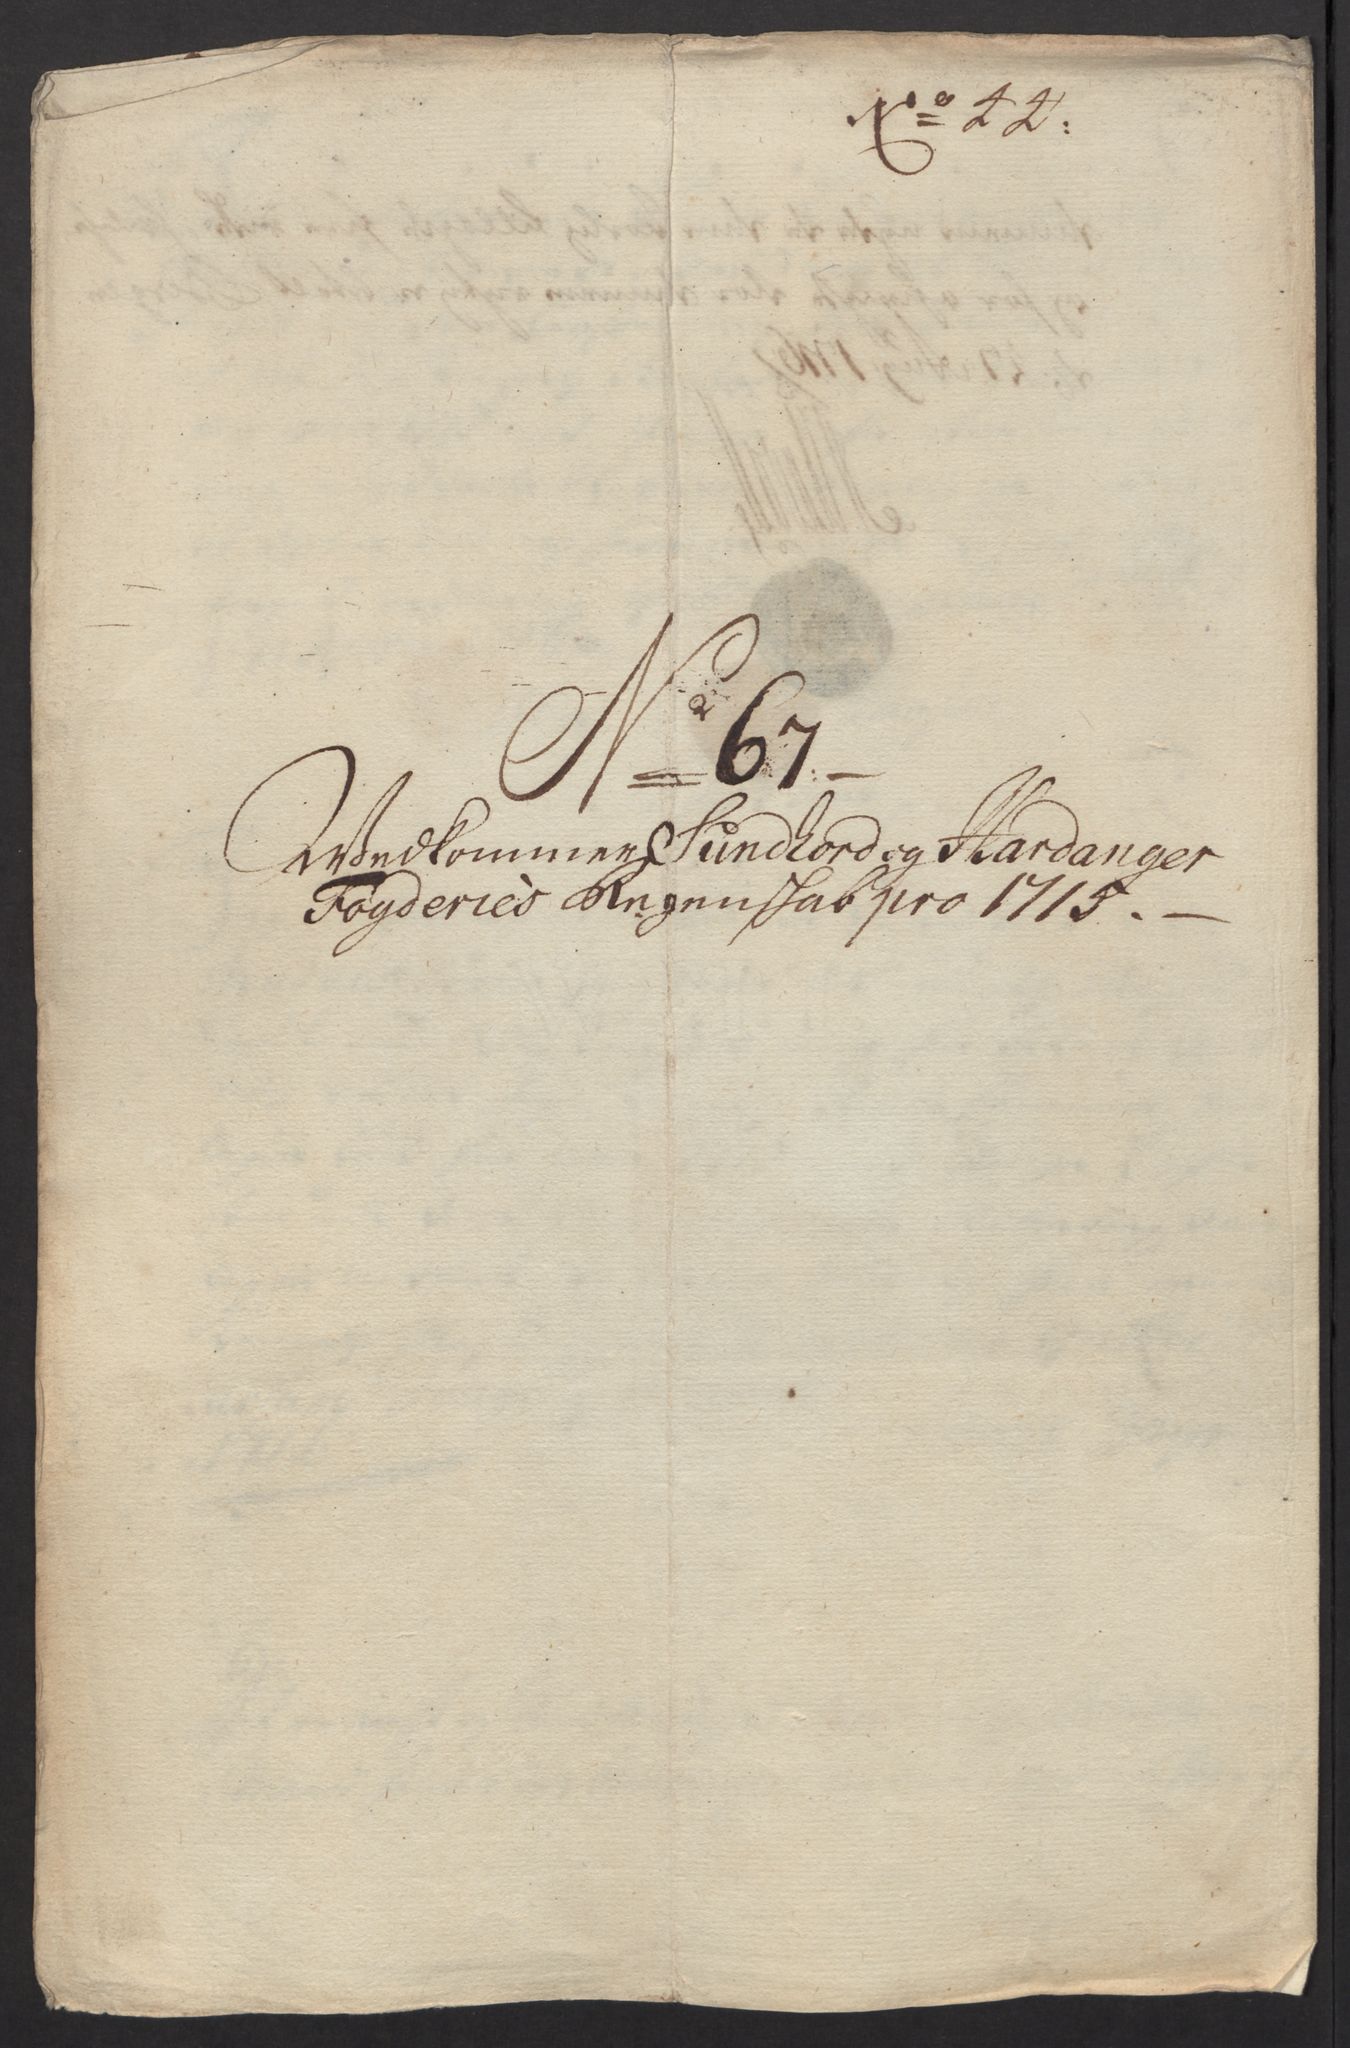 No 22:
No 67.
Vedkommer Sundhord og Hardanger
Fogderies Regenskab pro 1715.